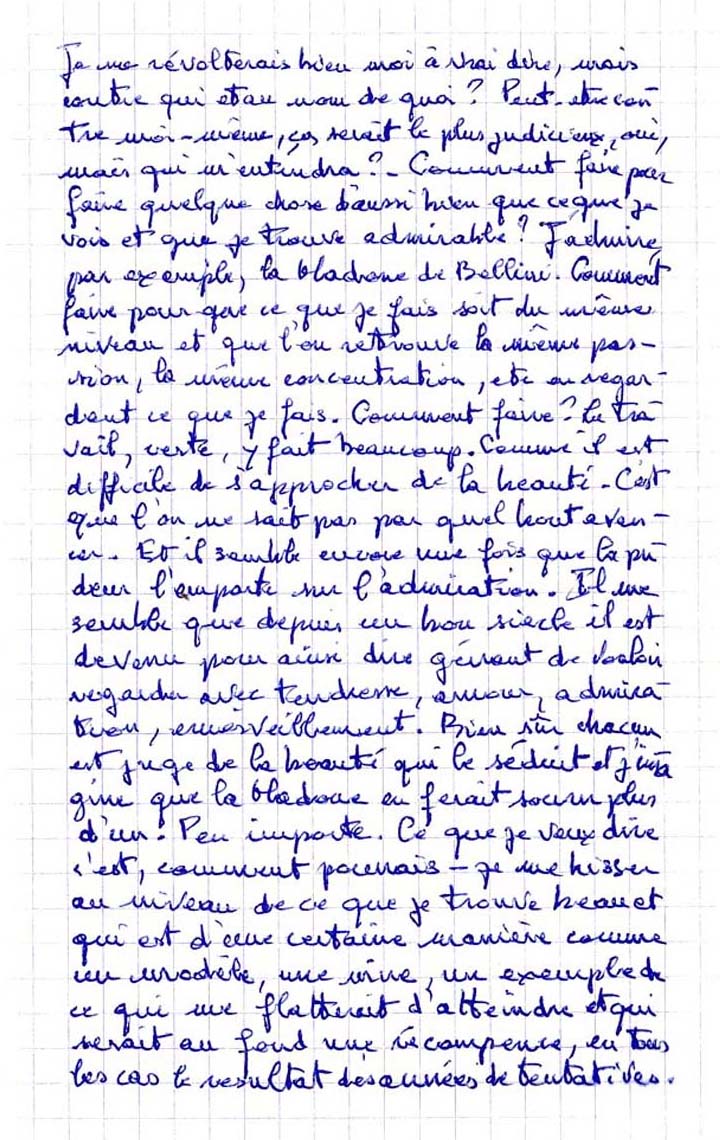 Je me révolterais bien moi à vrai dire, mais
contre qui et au nom de quoi ? Peut-être con
tre moi-même, ça serait le plus judicieux, oui,
mais qui m'entendra ? - Comment faire pour
faire quelque chose d'aussi bien que ce que je
vois et que je trouve admirable ? J'admire,
par exemple, la Madone de Bellini. Comment
faire pour que ce que je fais soit du même
niveau et que l'on retrouve la même pas-
sion, la même concentration, etc en regar-
dant ce que je fais. Comment faire ? Le tra
vail, certe, y fait beaucoup. Comme il est
difficile de s'approcher de la beauté. C'est
que l'on ne sait pas par quel bout aven-
cer. Et il semble encore une fois que la pu
deur l'emporte sur l'admiration. Il me
semble que depuis un bon siècle il est
devenu pour ainsi dire gênant de vouloir
regarder avec tendresse, amour, admira
tion, émerveillement. Bien sûr chacun
est juge de la beauté qui le séduit et j'ima
gine que la Madone en ferait sourir plus
d'un. Peu importe. Ce que je veux dire
c'est, comment pourrais-je me hisser
au niveau de ce que je trouve beau et
qui est d'une certaine manière comme
un modèle, une mire, un exemple de
ce qui me flatterait d'atteindre et qui
serait au fond une récompence, en tous
les cas le résultat des années de tentatives.